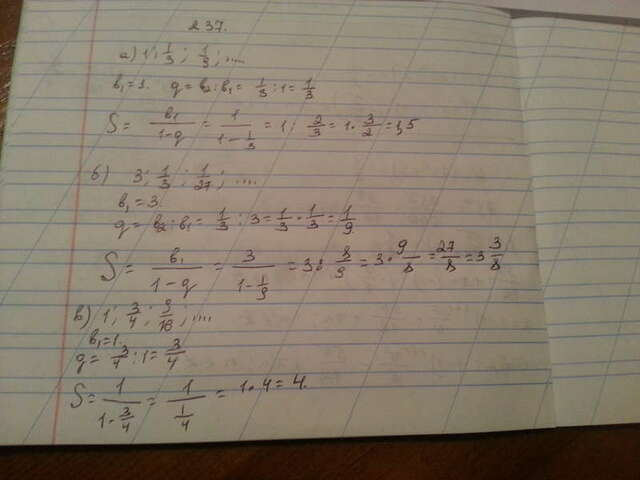 237.
а) 1; 1/3; 1/3; ....
b₁=1. q=b₂:b₁= 1/3 : 1 = 1/3
S = b₁/(1-q) = 1/(1-1/3) = 1 : 2/3 = 1 · 3/2 = 1,5
б) 3; 1/3; 1/27; ....
b₁=3.
q=b₂:b₁= 1/3 : 3 = 1/3 · 1/3 = 1/9
S = b₁/(1-q) = 3/(1-1/9) = 3 : 8/9 = 3 · 9/8 = 27/8 = 3 3/8
в) 1; 3/4; 9/16; ....
b₁=1.
q= 3/4 : 1 = 3/4
S = 1/(1-3/4) = 1/(1/4) = 1 · 4 = 4.